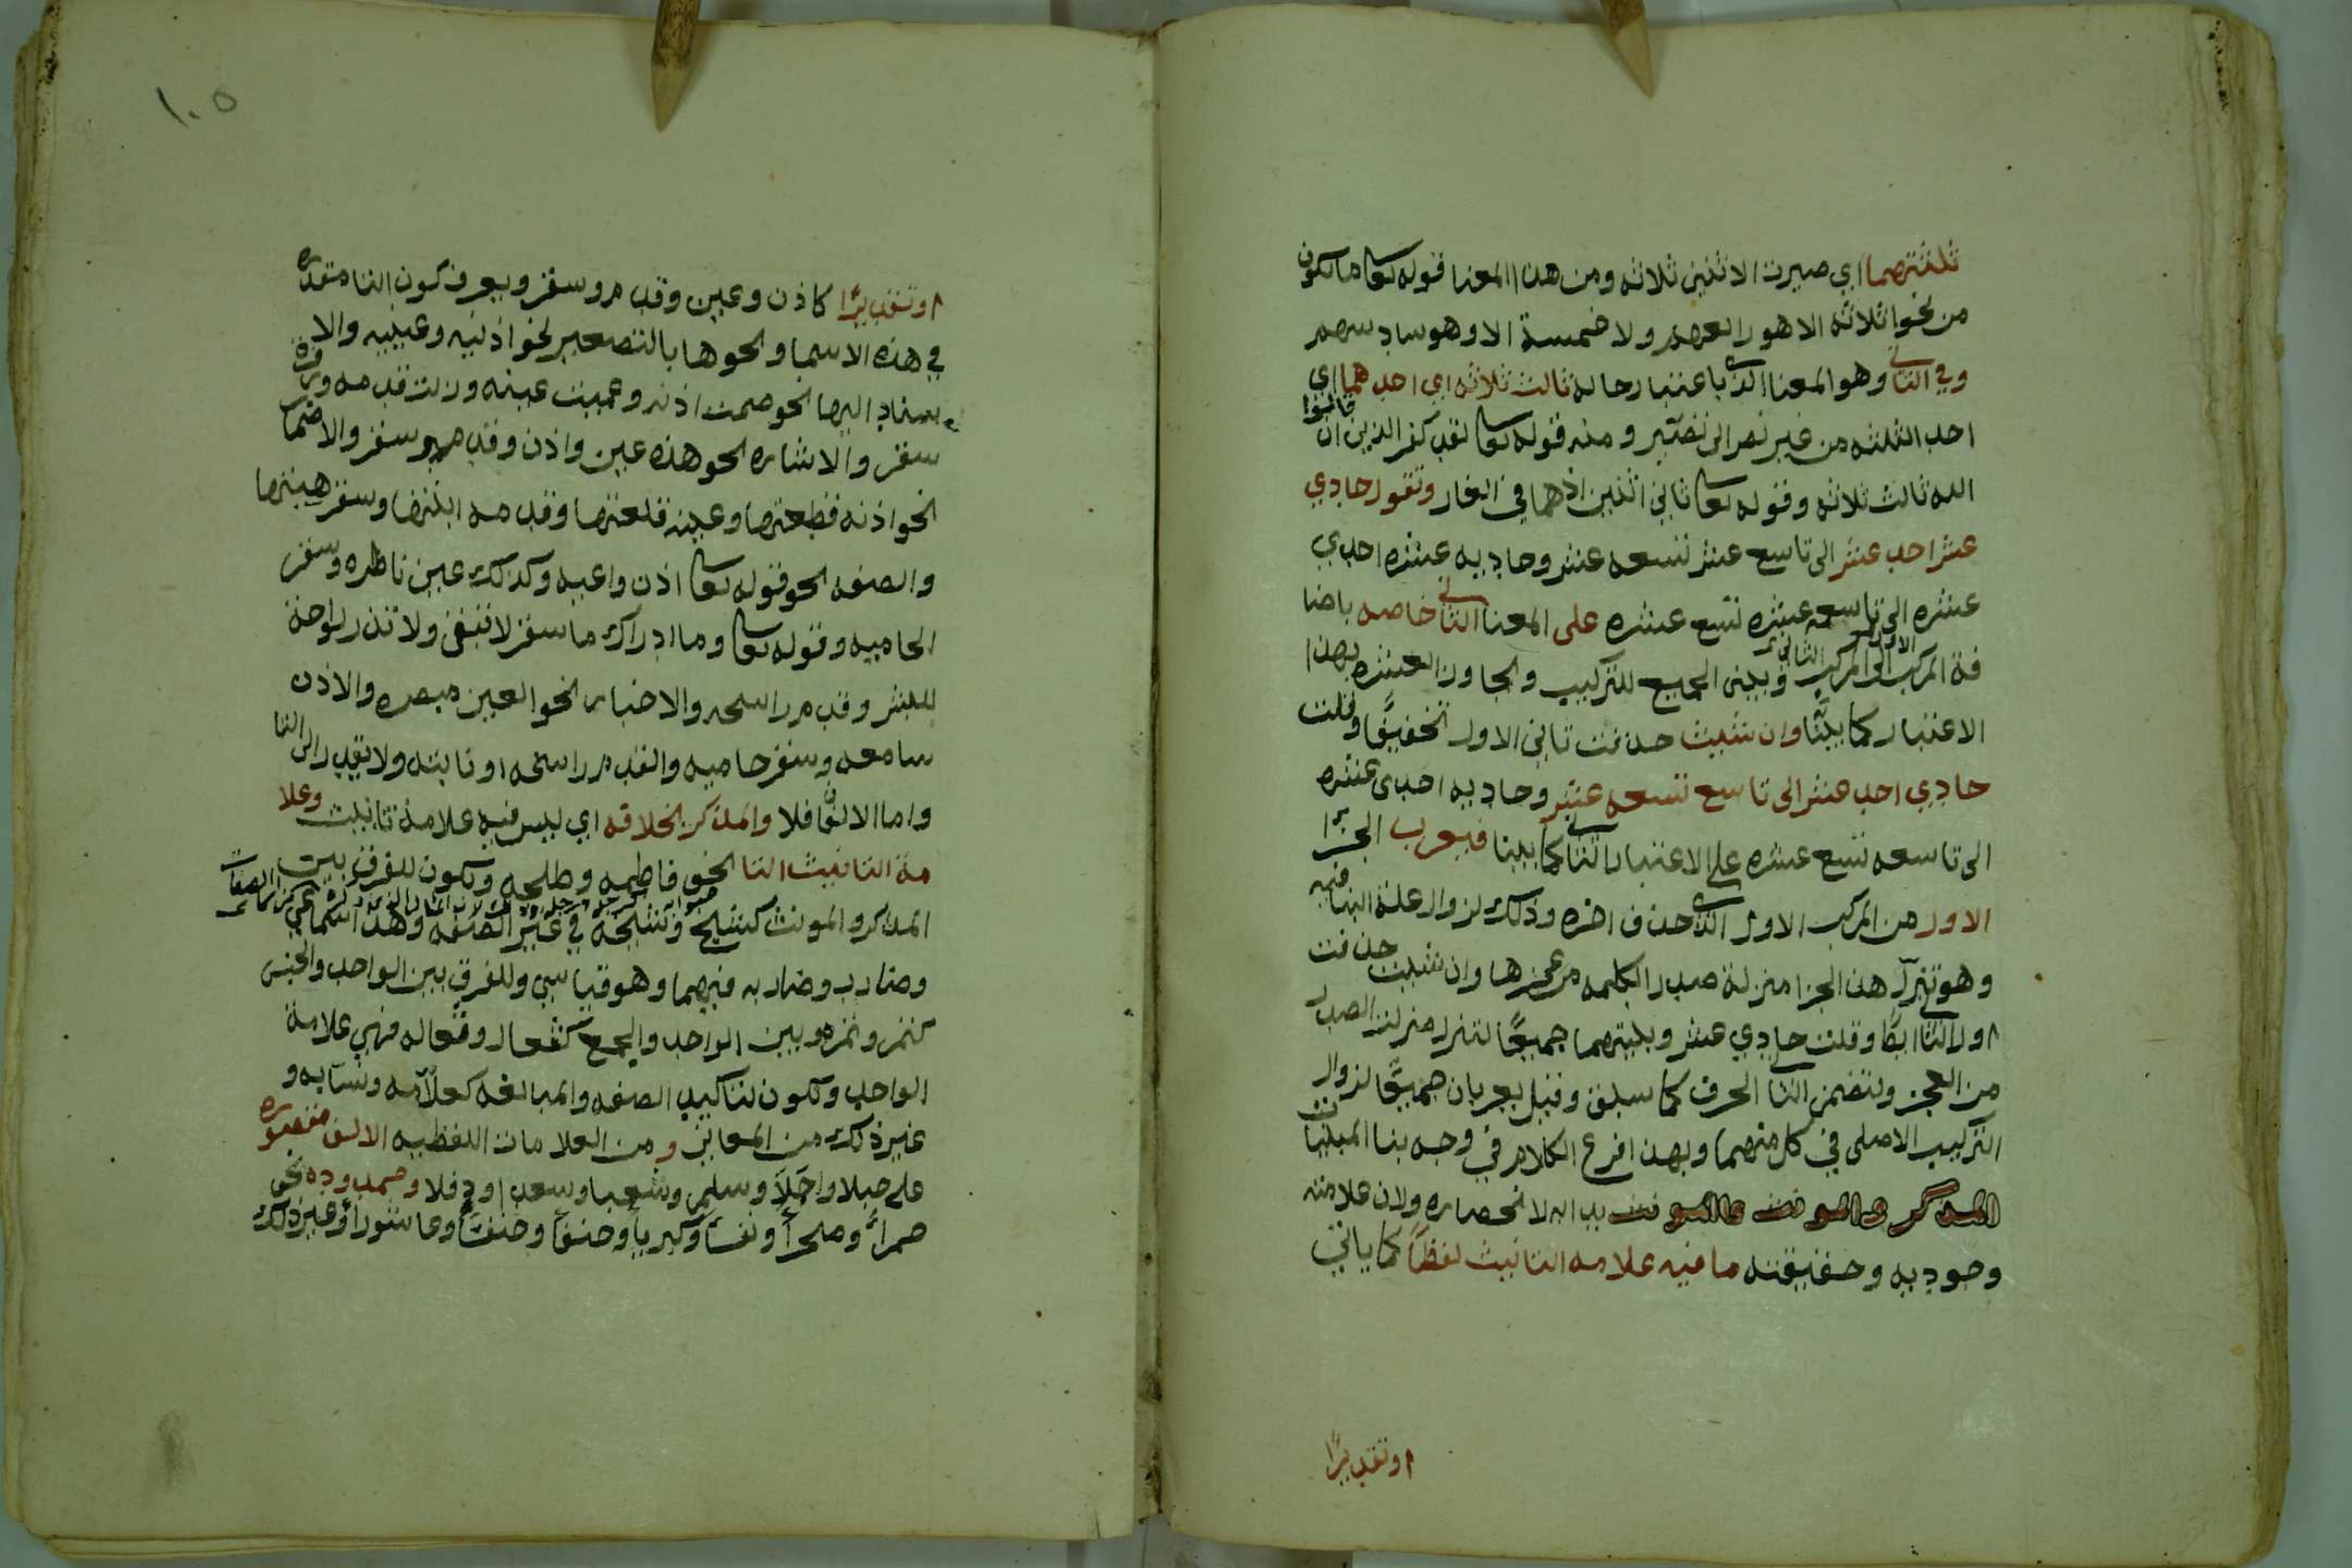 ثلثتهما اي صيرت الاثنين ثلاثه ومن هذا المعنا قوله تعا ما يكون
من نجوا ثلاثه الا هو رابعهم ولا خمسة الا وهو سادسهم
وفي الثاني وهو المعنا الذي باعتبار حاله ثالث ثلاثه اي احدهما اي
احد الثلثه من غير نصر الى تصيير ومنه قوله تعا لقد كفر الذين قالوا ان
الله ثالث ثلاثه وقوله تعا ثاني اثنين اذهما في الغار وتقول حادي
عشر احد عشر الى تاسع عشر تسعه عشر وحاديه عشره احدي
عشره الى تاسعه عشره تسع عشره على المعنا الثاني خاصه باضا
فة المركب الاول الى المركب الثاني وبني الجميع للتركيب والجاوزا العشره بهذا
الاعتبار كما بينا وان شيت حذفت ثاني الاول تخفيفا وقلت
حادي احد عشر الى تاسع تسعه عشر وحاديه احدى عشره
الى تاسعه تسع عشره على الاعتبار الثاني كما بينا فيعرب الجزا
الاول من المركب الاول الذي حذف اخره وذلك لزوال علة البنا فيه
وهو تنزل هذا الجزا منزلة صدر الكلمه من عجزها وان شيت حذفت
اول الثاني ايضا وقلت حادي عشر وبنيتهما جميعا لتنزل منزلت الصدر
من العجز ولتضمن الثاني الحرف كما سبق وقيل يعربان جميعا لزوال
التركيب الاصلي في كل منهما وبهذا فرغ الكلام في وجه بنا المبنيات
المذكر والمونث فالمونث بدا به لانحصاره ولان علامته
وجوديه وحقيقته ما فيه علامه التانيث لفظا كما ياتي
او تقديرا
١٠٥
او تقديرا كاذن وعين وقدم وسقر ويعرف كون التا مقدره
في هذه الاسما ونحوها بالتصغير نحو اذنيه وعيينه والا
سناد اليها نحو صمت اذنه وعميت عينه وزلت قدمه
سقر والاشاره نحو هذه عين واذن وقدم وسقر والاضمار
نحو اذنه قطعتها وعينه قلعتها وقدمه ابنتها وسقر هيبتها
والصفه نحو قوله تعا اذن واعيه وكذلك عين ناظره وسقر
الحاميه وقوله تعا وما ادراك ما سقر لا تبقي ولا تذر لواحة
للبشر وقدم راسخه والاخبار نحو العين مبصره والاذن
سامعه وسقر حاميه والقدم راسخه او ثابته ولا يقدر الى التا
واما الالفان فلا والمذكر بخلافه اي ليس فيه علامة تانيث وعلا
مة التانيث التا نحو فاطمه وطلحه وتكون للفرق بين
المذكر والمونث كشيخ وشيخة في غير الصفه وهذا سماعي
وضارب وضاربه فيهما وهو قياسي وللفرق بين الواحد والجنس
كتمر وتمره وبين الواحد والجمع كفعال وفعاله فهي علامة
الواحد وتكون لتاكيد الصفه والمبالغه كعلامه ونسابه و
غير ذلك من المعاني ومن العلامات اللفظيه الالف مقصوره
على حبلا واجلا وسلمى وشعبا وسعدا ودفلا وممدوده نحو
حمراء وصحرا ونفسا وكبريا وعاشورا وغير ذلك